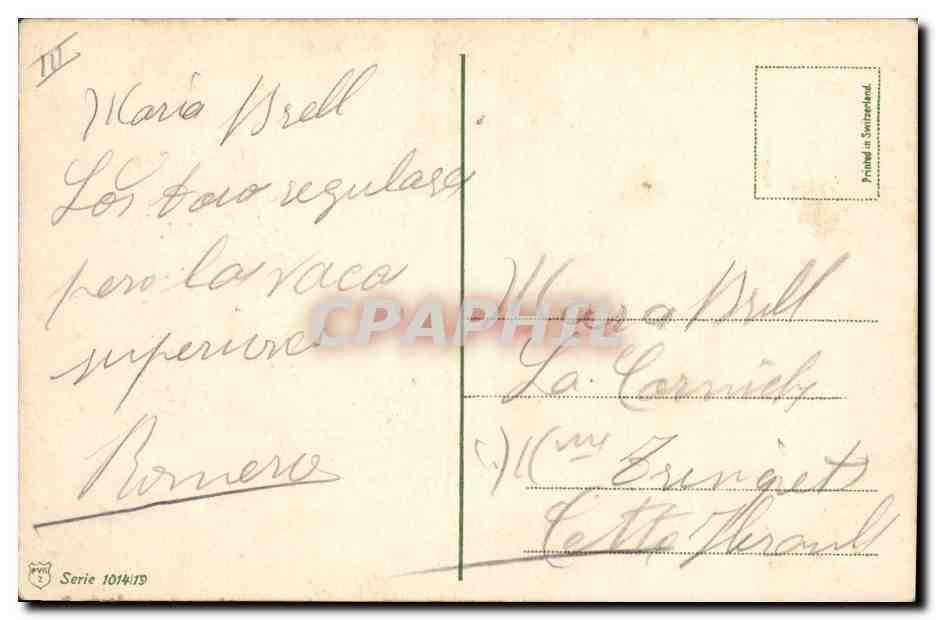 III
Maria Brell
Los toro regulares
pero las vacas
superiore
Romero
Printed in Switzerland.
Maria Brell
La Corniche
Mme
Cette Herault
CPAPHIL
Serie 1014/19